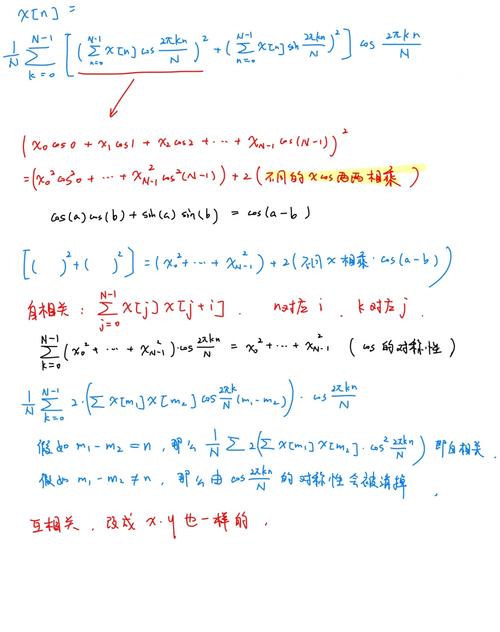 x[n] =
1/N Σ_{k=0}^{N-1} [ ( Σ_{n=0}^{N-1} x[n] cos 2πkn/N )² + ( Σ_{n=0}^{N-1} x[n] sin 2πkn/N )² ] cos 2πkn/N
( x₀ cos0 + x₁ cos1 + x₂ cos2 + ⋯ + x_{N-1} cos(N-1) )²
= (x₀² cos²0 + ⋯ + x²_{N-1} cos²(N-1)) + 2 ( 不同的 x cos 两两相乘 )
cos(a) cos(b) + sin(a) sin(b) = cos(a-b)
[ ( )² + ( )² ] = (x₀² + ⋯ + x²_{N-1}) + 2( 不同 x 相乘 · cos(a-b) )
自相关 : Σ_{j=0}^{N-1} x[j] x[j+i] . n对应 i . k对应 j .
Σ_{k=0}^{N-1} (x₀² + ⋯ + x²_{N-1}) · cos 2πkn/N = x₀² + ⋯ + x²_{N-1} ( cos 的对称性 )
1/N Σ_{k=0}^{N-1} 2 · ( Σ x[m₁] x[m₂] cos 2πk/N (m₁ - m₂) ) · cos 2πkn/N
假如 m₁ - m₂ = n , 那么 1/N Σ 2( Σ x[m₁] x[m₂] · cos² 2πkn/N ) 即自相关 .
假如 m₁ - m₂ ≠ n , 那么由 cos 2πkn/N 的对称性会被消掉 .
互相关 . 改成 x·y 也一样的 .